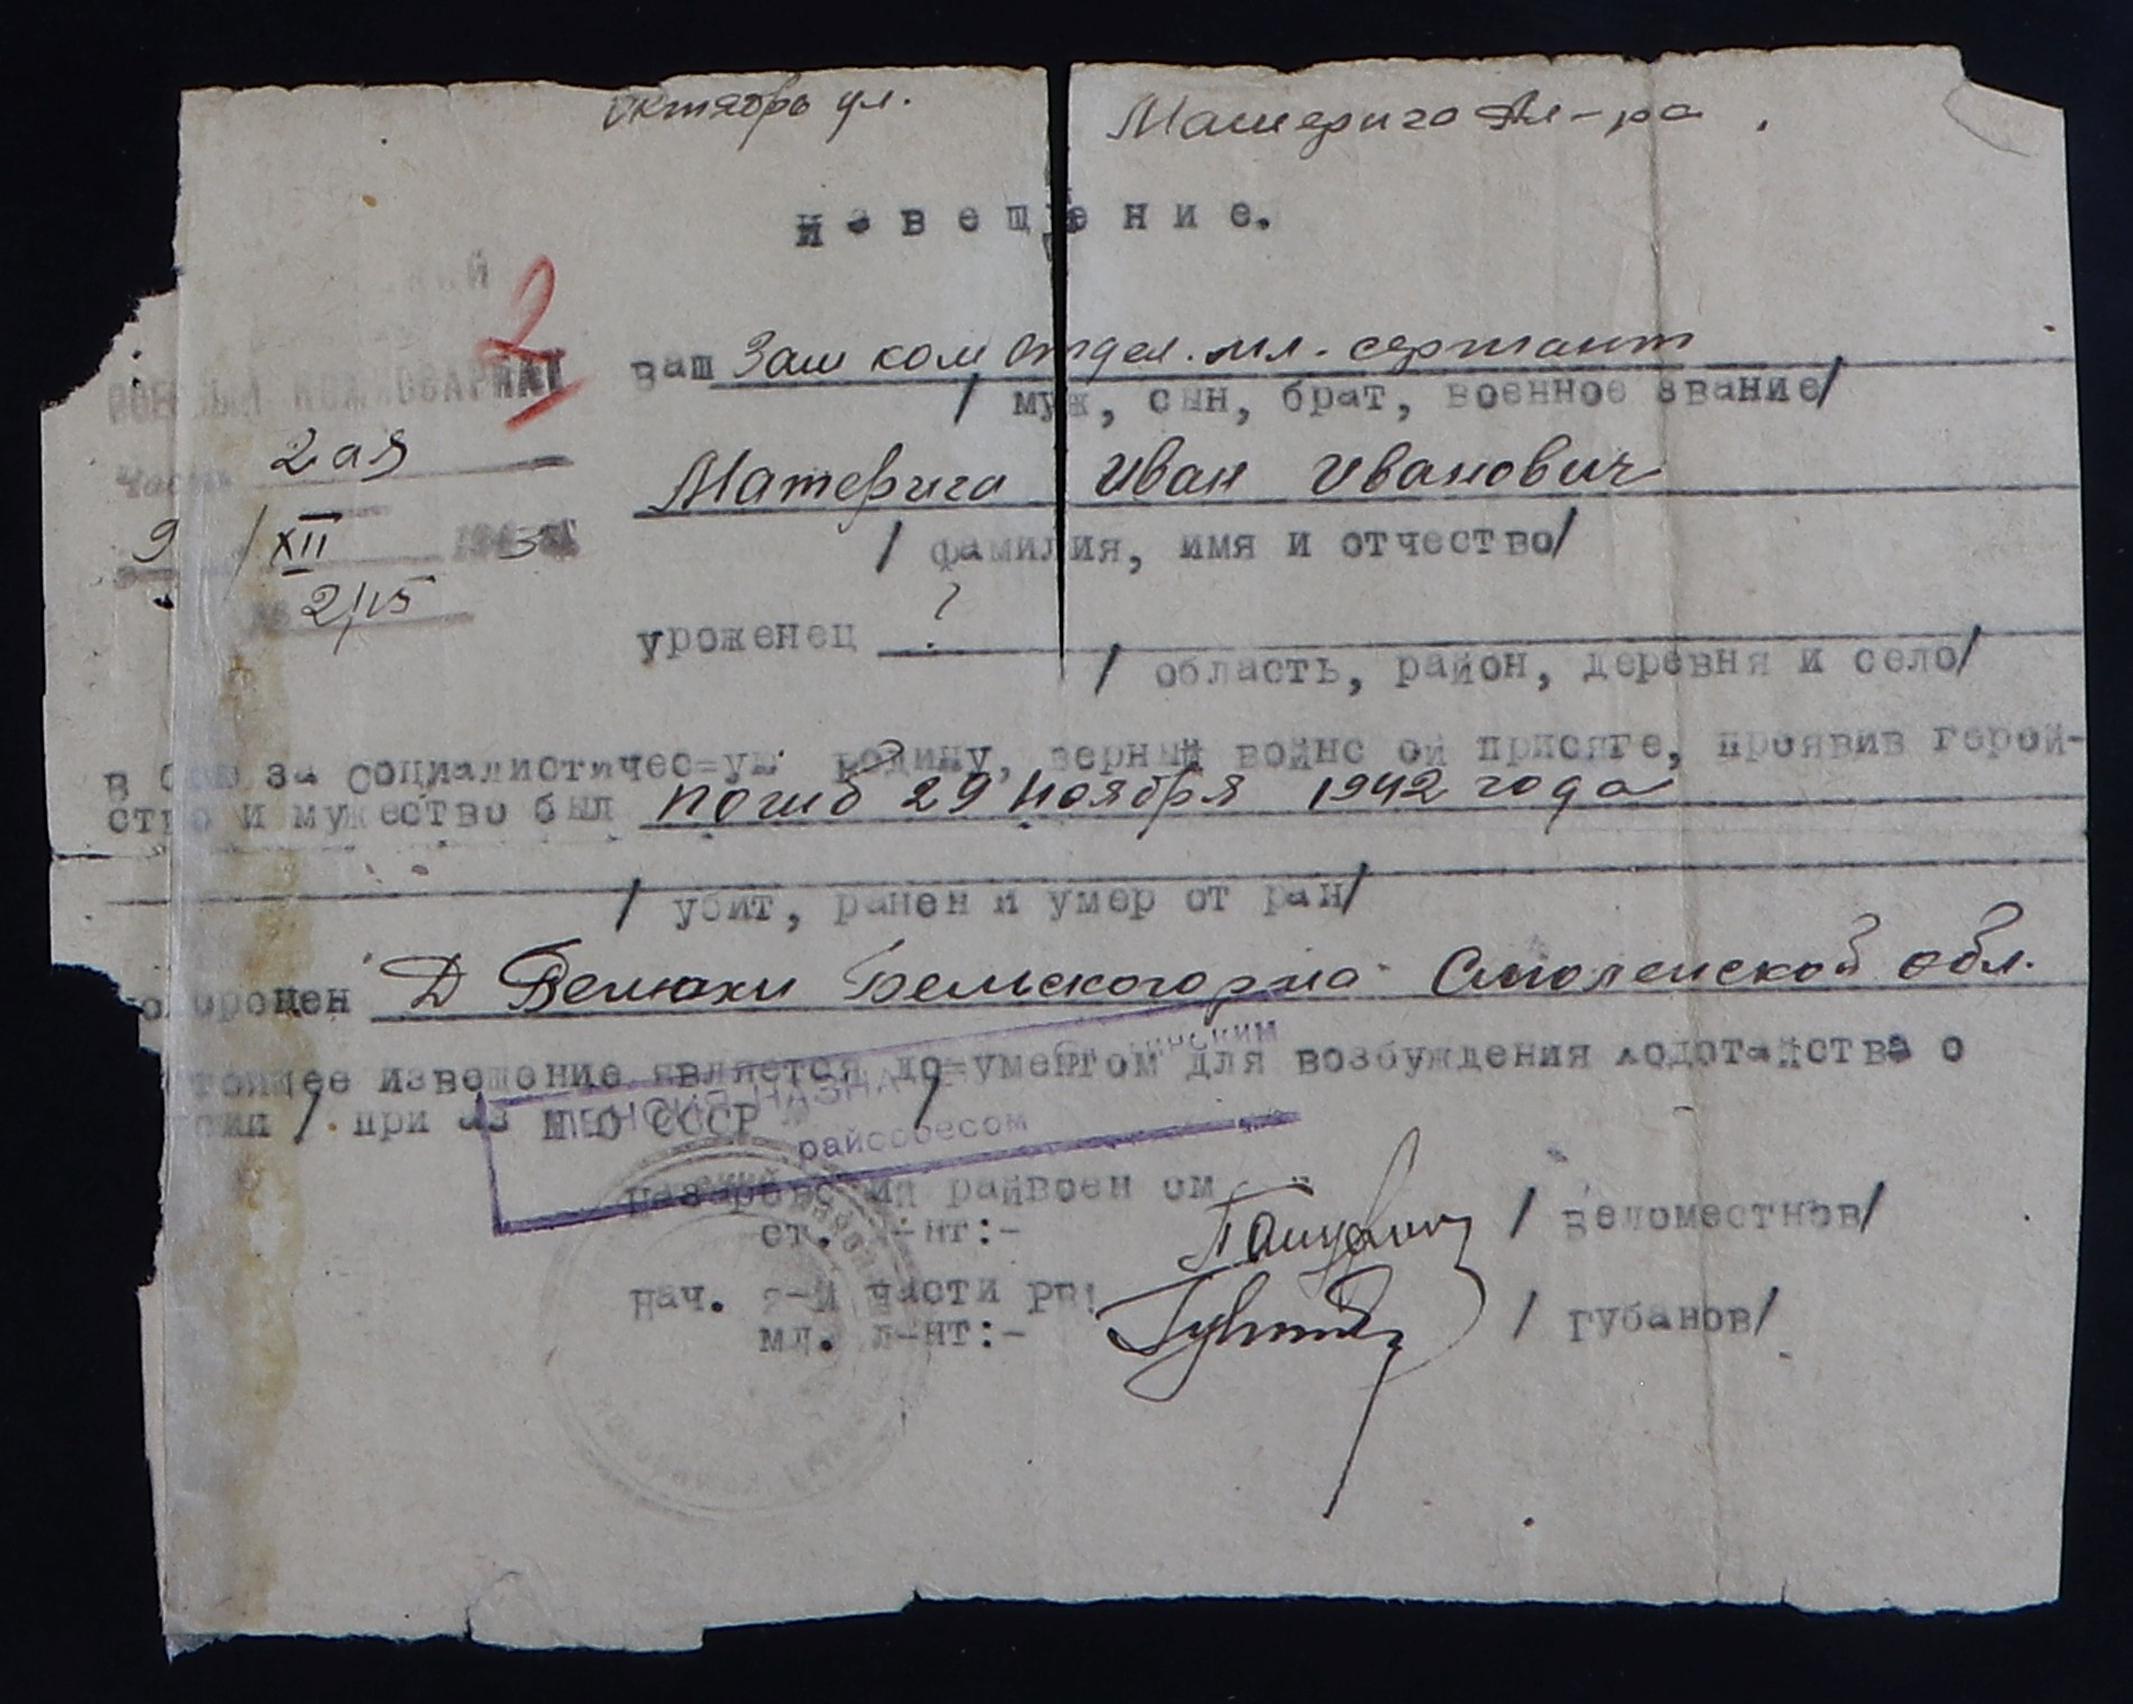 Октябрь ул.
Материга Ал-ра.
извещение.
2
ВОЕННЫЙ КОМИССАРИАТ
ваш Зам ком отдел. мл. сержант
/ муж, сын, брат, военное звание/
Часть 2ая
Материга Иван Иванович
9 / XII 1943
/ фамилия, имя и отчество/
№ 2/15
уроженец ?
/ область, район, деревня и село/
в бою за социалистическую родину, верный воинской присяге, проявив герой-
ство и мужество был погиб 29 ноября 1942 года
/ убит, ранен и умер от ран/
охоронен Д Велюки Бельского р-на Смоленской обл.
тоящее извещение является документом для возбуждения ходотайства о
сии /. при аз НКО СССР /
райсобесом
райвоенком
ст. л-нт:- / веломестнов/
нач. 2-й части рвк
мл. л-нт:- / губанов/